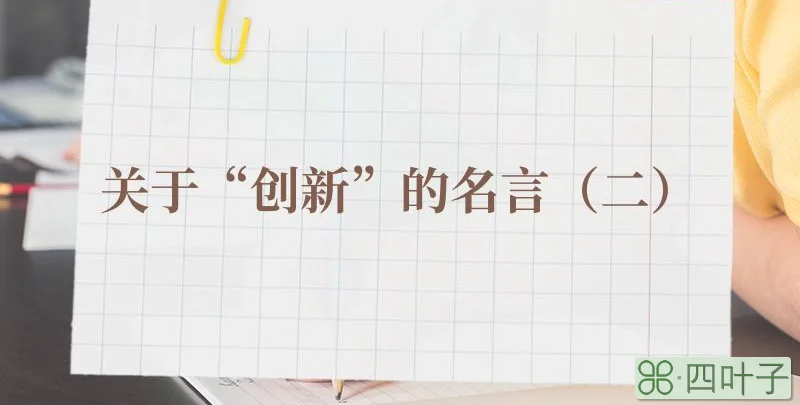 关于“创新”的名言（二）
四叶子